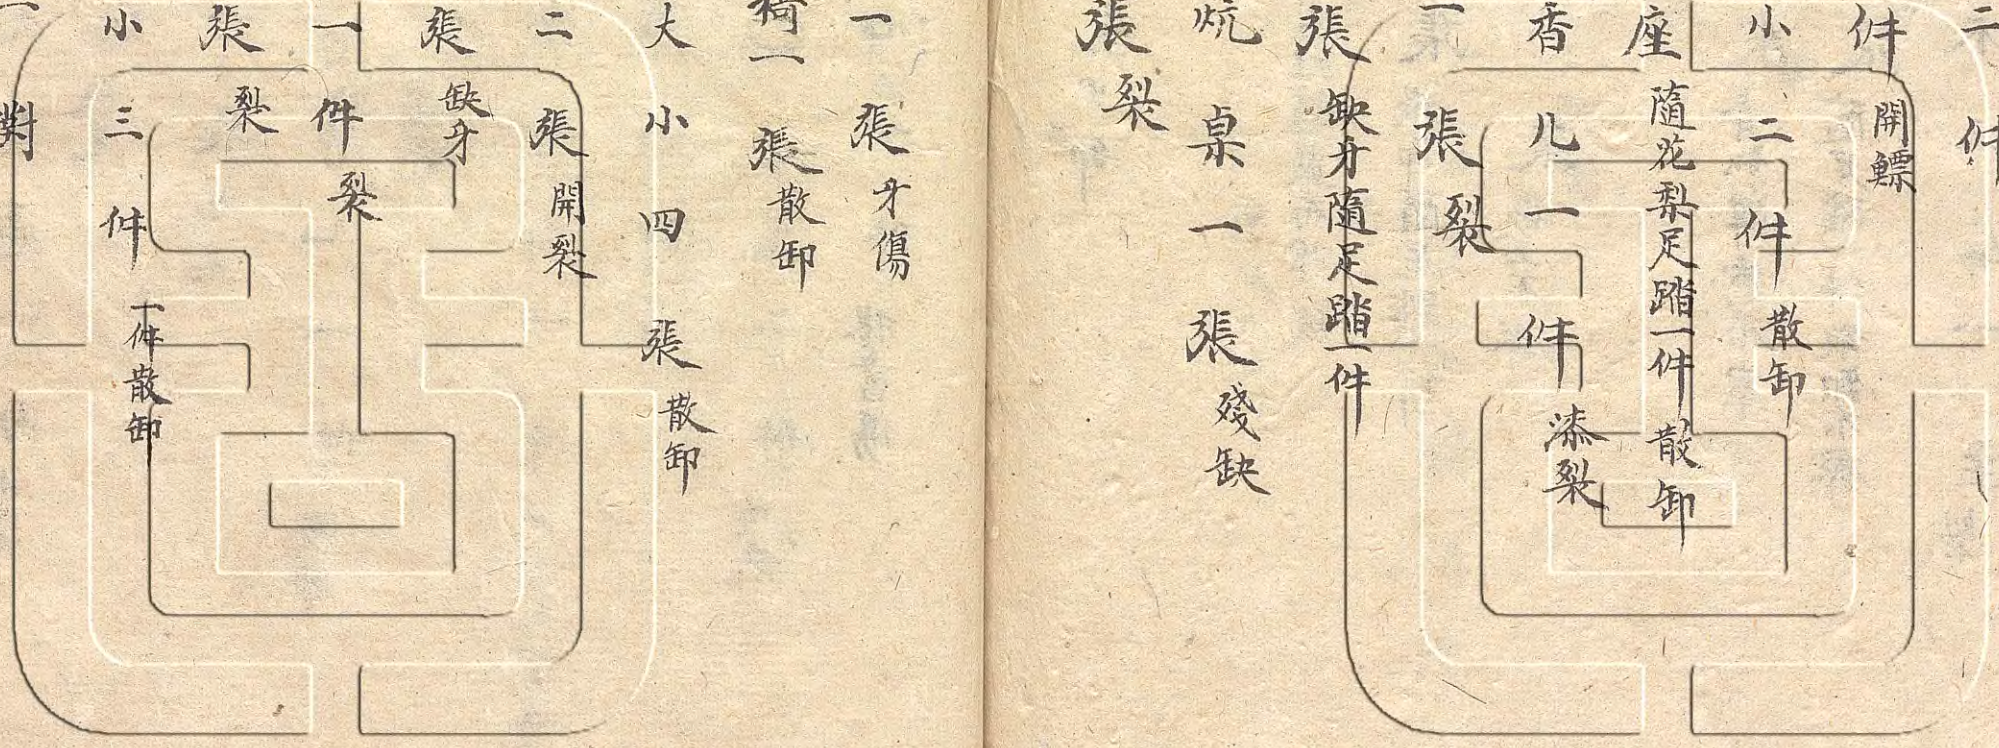 二件
件開鰾
小二件散卸
座隨花梨足踏一件散卸
香几一件漆裂
一張裂
張缺牙隨足踏一件
炕桌一張殘缺
張裂
一張牙傷
椅一張散卸
大小四張散卸
二張開裂
張缺牙
一件裂
張裂
小三件一件散卸
對